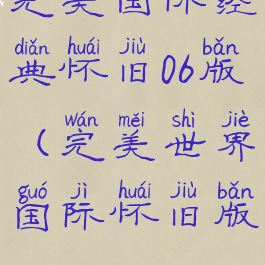 完美国际经
diǎn huái jiù bǎn
典怀旧06版
wán měi shì jiè
（完美世界
guó jì huái jiù bǎn
国际怀旧版